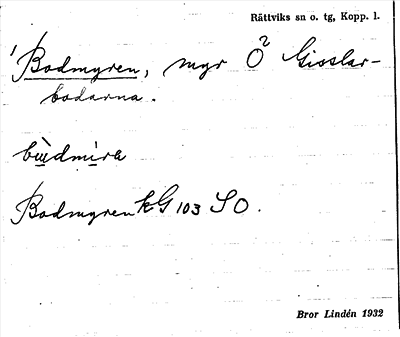 Rättviks sn o. tg, Kopp. l.
Bodmyren, myr Ö² Gisslar-
bodarna.
bùdmìra
Bodmyren kG 103 SO.
Bror Lindén 1932